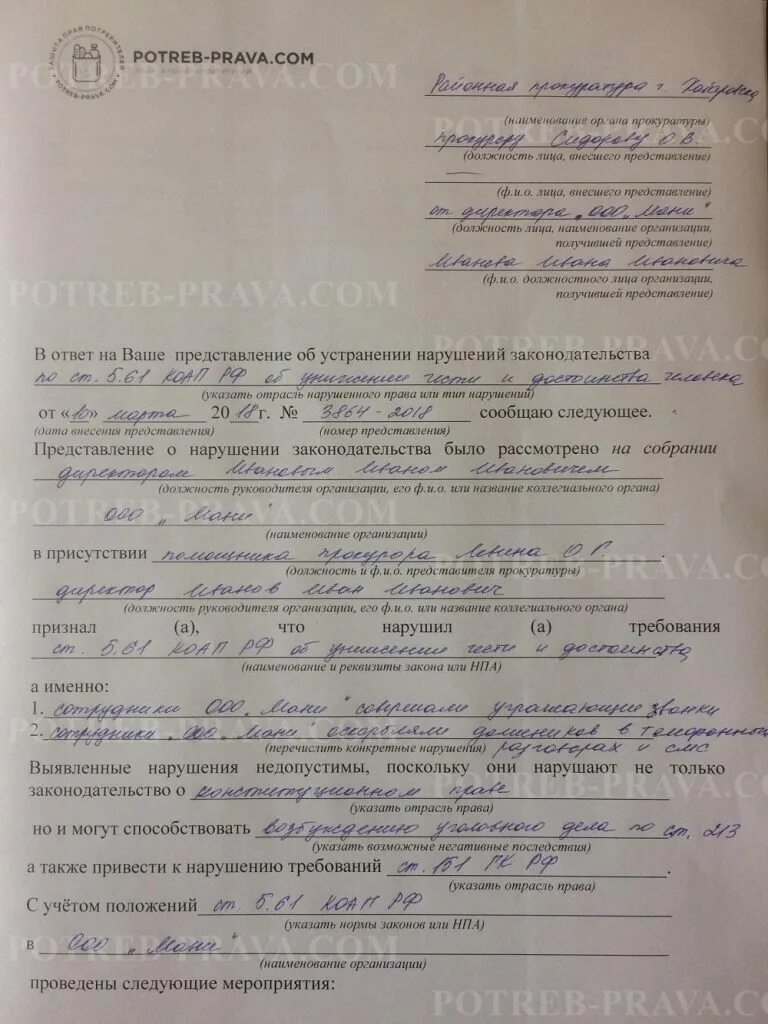 ЗАЩИТА ПРАВ ПОТРЕБИТЕЛЕЙ
POTREB-PRAVA.COM
POTREB-PRAVA.COM
Районная прокуратура г. Хабаровска
(наименование органа прокуратуры)
прокурору Сидорову О.В.
(должность лица, внесшего представление)
—
(ф.и.о. лица, внесшего представление)
от директора „ООО „Мани"
(должность лица, наименование организации,
получившей представление)
Иванова Ивана Ивановича
(ф.и.о. должностного лица организации,
получившей представление)
В ответ на Ваше представление об устранении нарушений законодательства
по ст. 5.61 КОАП РФ об унижении чести и достоинства человека
(указать отрасль нарушенного права или тип нарушений)
от «10» марта 2018г. № 3864-2018 сообщаю следующее.
(дата внесения представления) (номер представления)
Представление о нарушении законодательства было рассмотрено на собрании
директором Ивановым Иваном Ивановичем
(должность руководителя организации, его ф.и.о. или название коллегиального органа)
ООО „Мани"
(наименование организации)
в присутствии помощника прокурора Левина О.Г.
(должность и ф.и.о. представителя прокуратуры)
директор Иванов Иван Иванович
(должность руководителя организации, его ф.и.о. или название коллегиального органа)
признал (а), что нарушил (а) требования
ст. 5.61 КОАП РФ об унижении чести и достоинства
(наименование и реквизиты закона или НПА)
а именно:
1. сотрудники ООО „Мани" совершали угрожающие звонки
2. сотрудники „ООО „Мани" оскорбляли должников в телефонных
(перечислить конкретные нарушения) разговорах и смс
Выявленные нарушения недопустимы, поскольку они нарушают не только
законодательство о конституционном праве
(указать отрасль права)
но и могут способствовать возбуждению уголовного дела по ст. 213
(указать возможные негативные последствия)
а также привести к нарушению требований ст. 151 ГК РФ.
(указать отрасль права)
С учётом положений ст. 5.61 КОАП РФ
(указать нормы законов или НПА)
в ООО „Мани"
(наименование организации)
проведены следующие мероприятия: